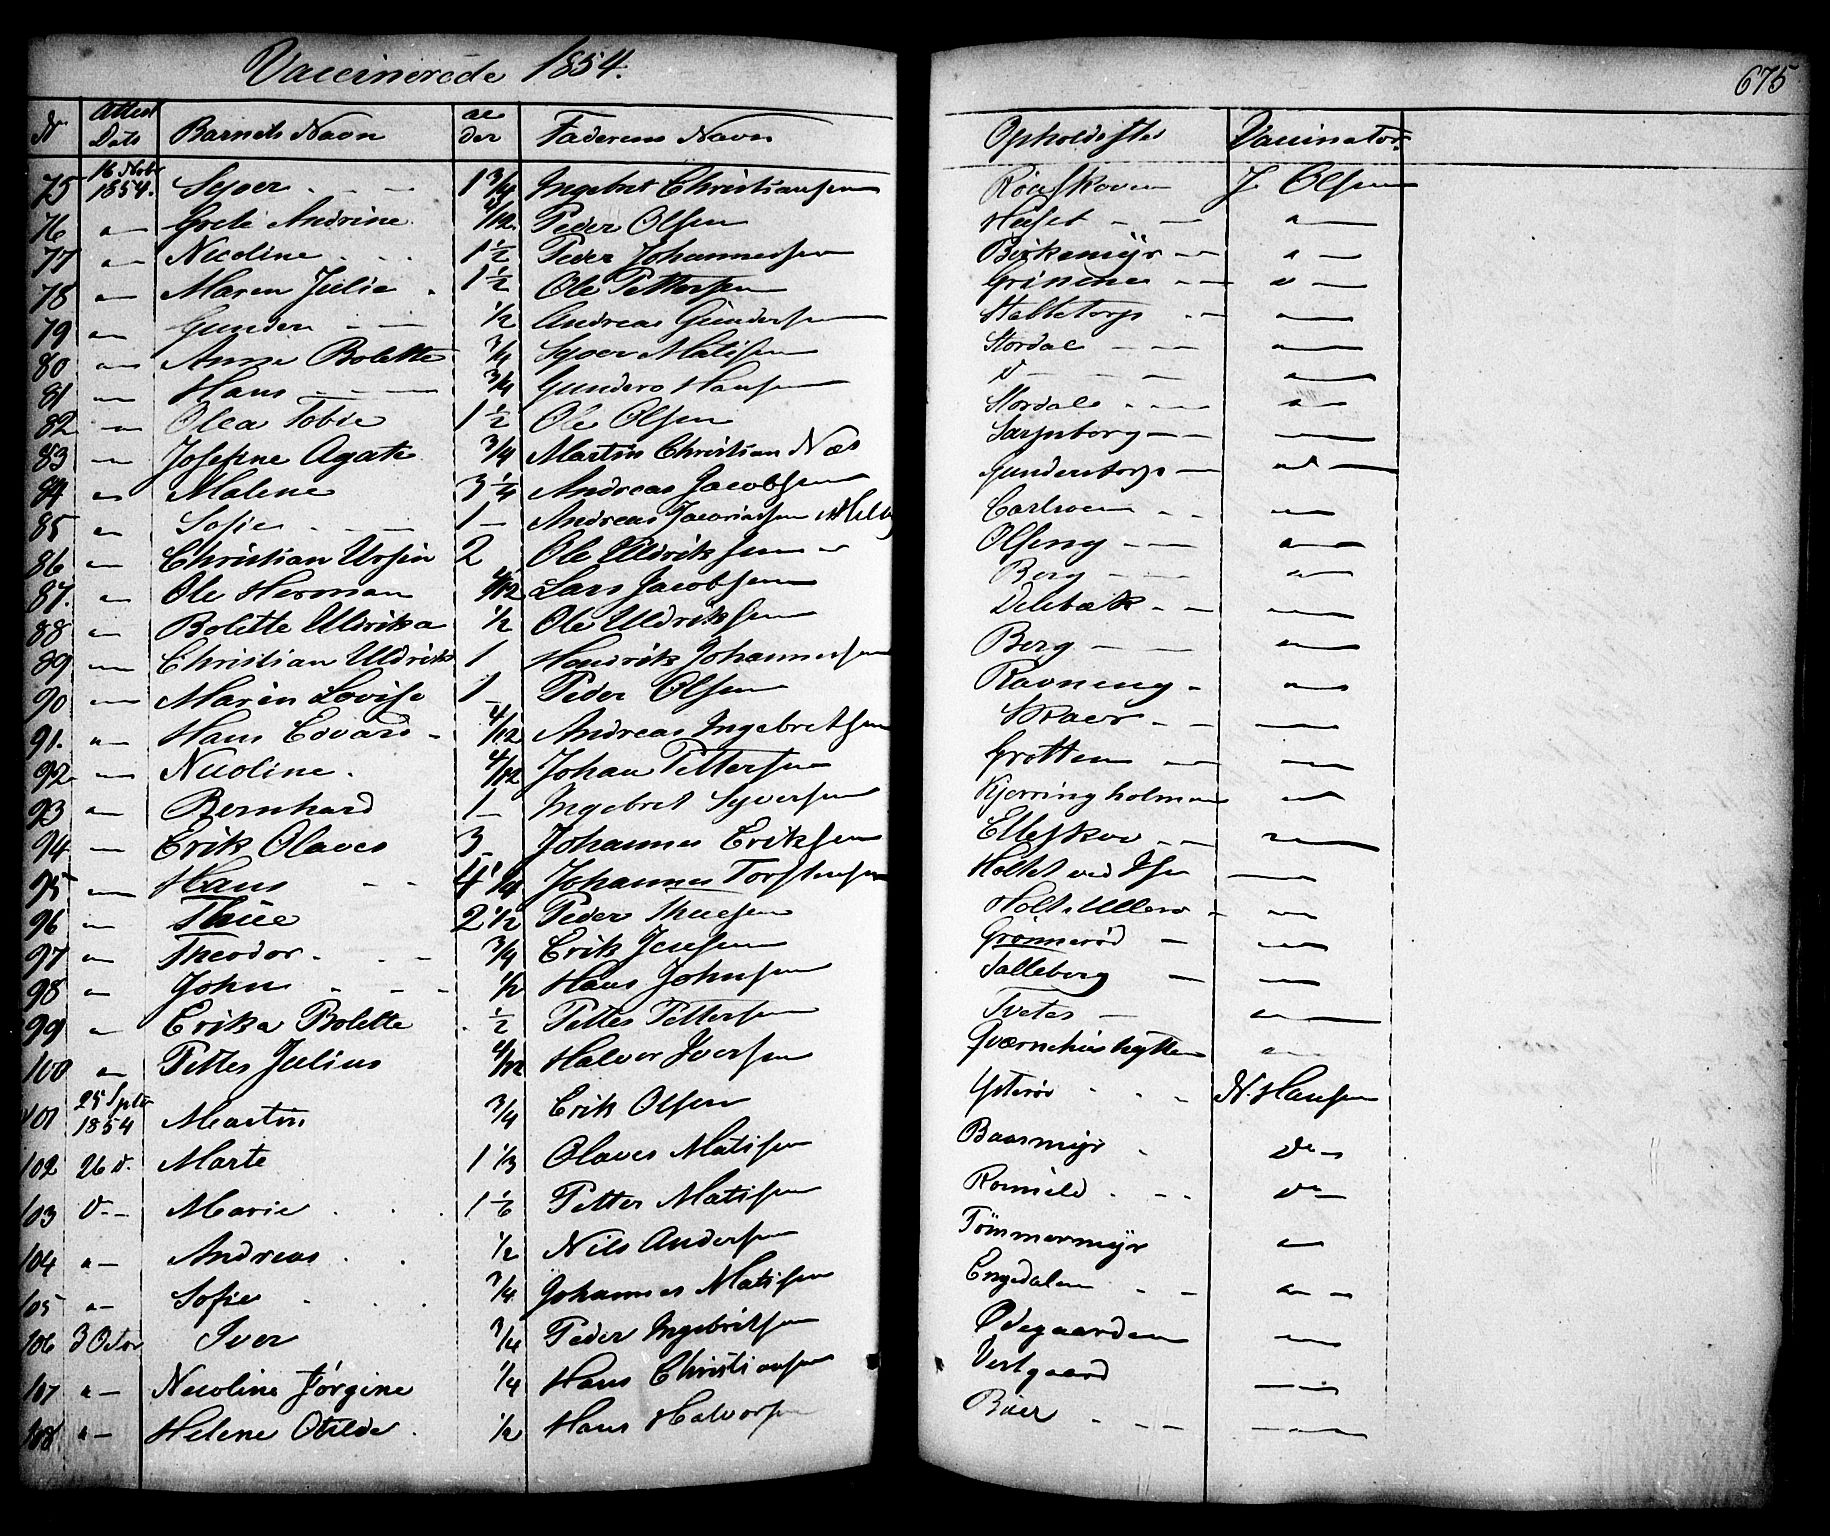 Vaccinerede 1854.
675
N Attest Dato Barnets Navn al der Faderens Navn Opholdssted Vaccinator
75 16 Novbr 1854. Syver 1 3/4 Ingebret Christiansen Röaskoven J Olsen
76 " Grete Andrine 4/12 Peder Olsen Huset "
77 " Nicoline 1 1/2 Peder Johannesen Birkemÿr "
78 " Maren Julie 1 1/2 Ole Pettersen Grinene "
79 " Gunder 1/2 Andreas Gundersen Stabetorp "
80 " Anne Bolette 3/4 Syver Matisen Stordal "
81 " Hans 3/4 Gunder Hansen d "
82 " Olea Tobie 1 1/2 Ole Olsen Stordal "
83 " Josefine Agate 3/4 Martin Christian Næs Sarpsborg "
84 " Malene 3 1/4 Andreas Jacobsen Gunderstorp "
85 " Sofie 1 Andreas Jacobsen Carlsven "
86 " Christian Ursin 2 Ole Uldriksen Olseng "
87. " Ole Herman 4/12 Lars Jacobsen Berg "
88 " Bolette Uldrika 1/2 Ole Uldriksen Delebæk "
89 " Christian Uldrik 1 Hendrik Johannesen Berg "
90 " Maren Lovise 1 Peder Olsen Ravneng "
91. " Hans Edvard 4/12 Andreas Ingebretsen Skaar "
92 " Nicoline 4/12 Johan Pettersen Grotten "
93 " Bernhard 1 Ingebret Syversen Kjerringholmen "
94 " Erik Olaves 3 Johannes Eriksen Elleskov "
95 " Hans 4 1/4 Johannes Torstensen Holtet ved Ise "
96 " Thue 2 1/2 Peder Thuesen Holt Ullerö "
97 " Theodor 3/4 Erik Jensen Grönneröd "
98 " John 1/2 Hans Johnsen Talleborg "
99 " Erika Bolette 1/2 Petter Pettersen Tveter "
100 " Petter Julius 4/12 Halvor Iversen Qværnehushytten "
101 25 Sptbr 1854 Martin 3/4 Erik Olsen Ysteröd N. Hansen
102 26 d. Marte 1 1/3 Olaves Matisen Baarmyr do
103 d. Marie 1 1/6 Petter Matisen Romeld do
104 " Andreas 1/2 Nils Andersen Tömmermyr "
105 " Sofie 3/4 Johannes Matisen Engedalen "
106 3 Octor Iver 3/4 Peder Ingebretsen Ødegaarden "
107 " Nicoline Jörgine 1/4 Hans Christiansen Vestgaard "
108 " Helene Otilde 1/2 Hans Halvorsen Böer "